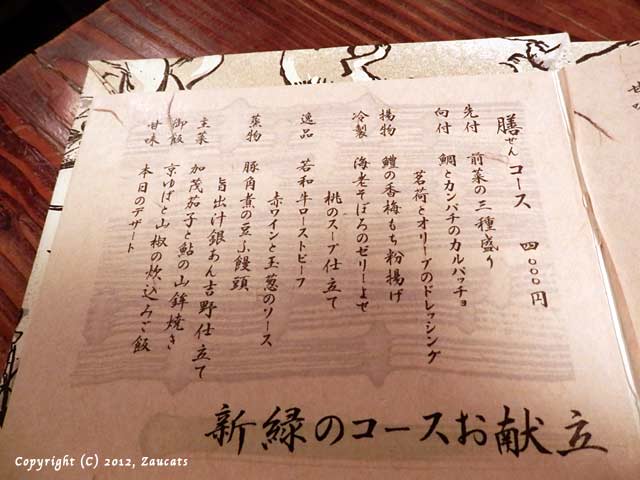 膳ぜんコース 四〇〇〇円
先付 前菜の三種盛り
向付 鯛とカンパチのカルパッチョ
茗荷とオリーブのドレッシング
揚物 鱧の香梅もち粉揚げ
冷製 海老そぼろのゼリーよせ
桃のスープ仕立て
逸品 若和牛ローストビーフ
赤ワインと玉葱のソース
蒸物 豚角煮の豆ふ饅頭
旨出汁銀あん吉野仕立て
主菜 加茂茄子と鮎の山鉾焼き
御飯 京ゆばと山椒の炊込みご飯
甘味 本日のデザート
新緑のコースお献立
Copyright (C) 2012, Zaucats